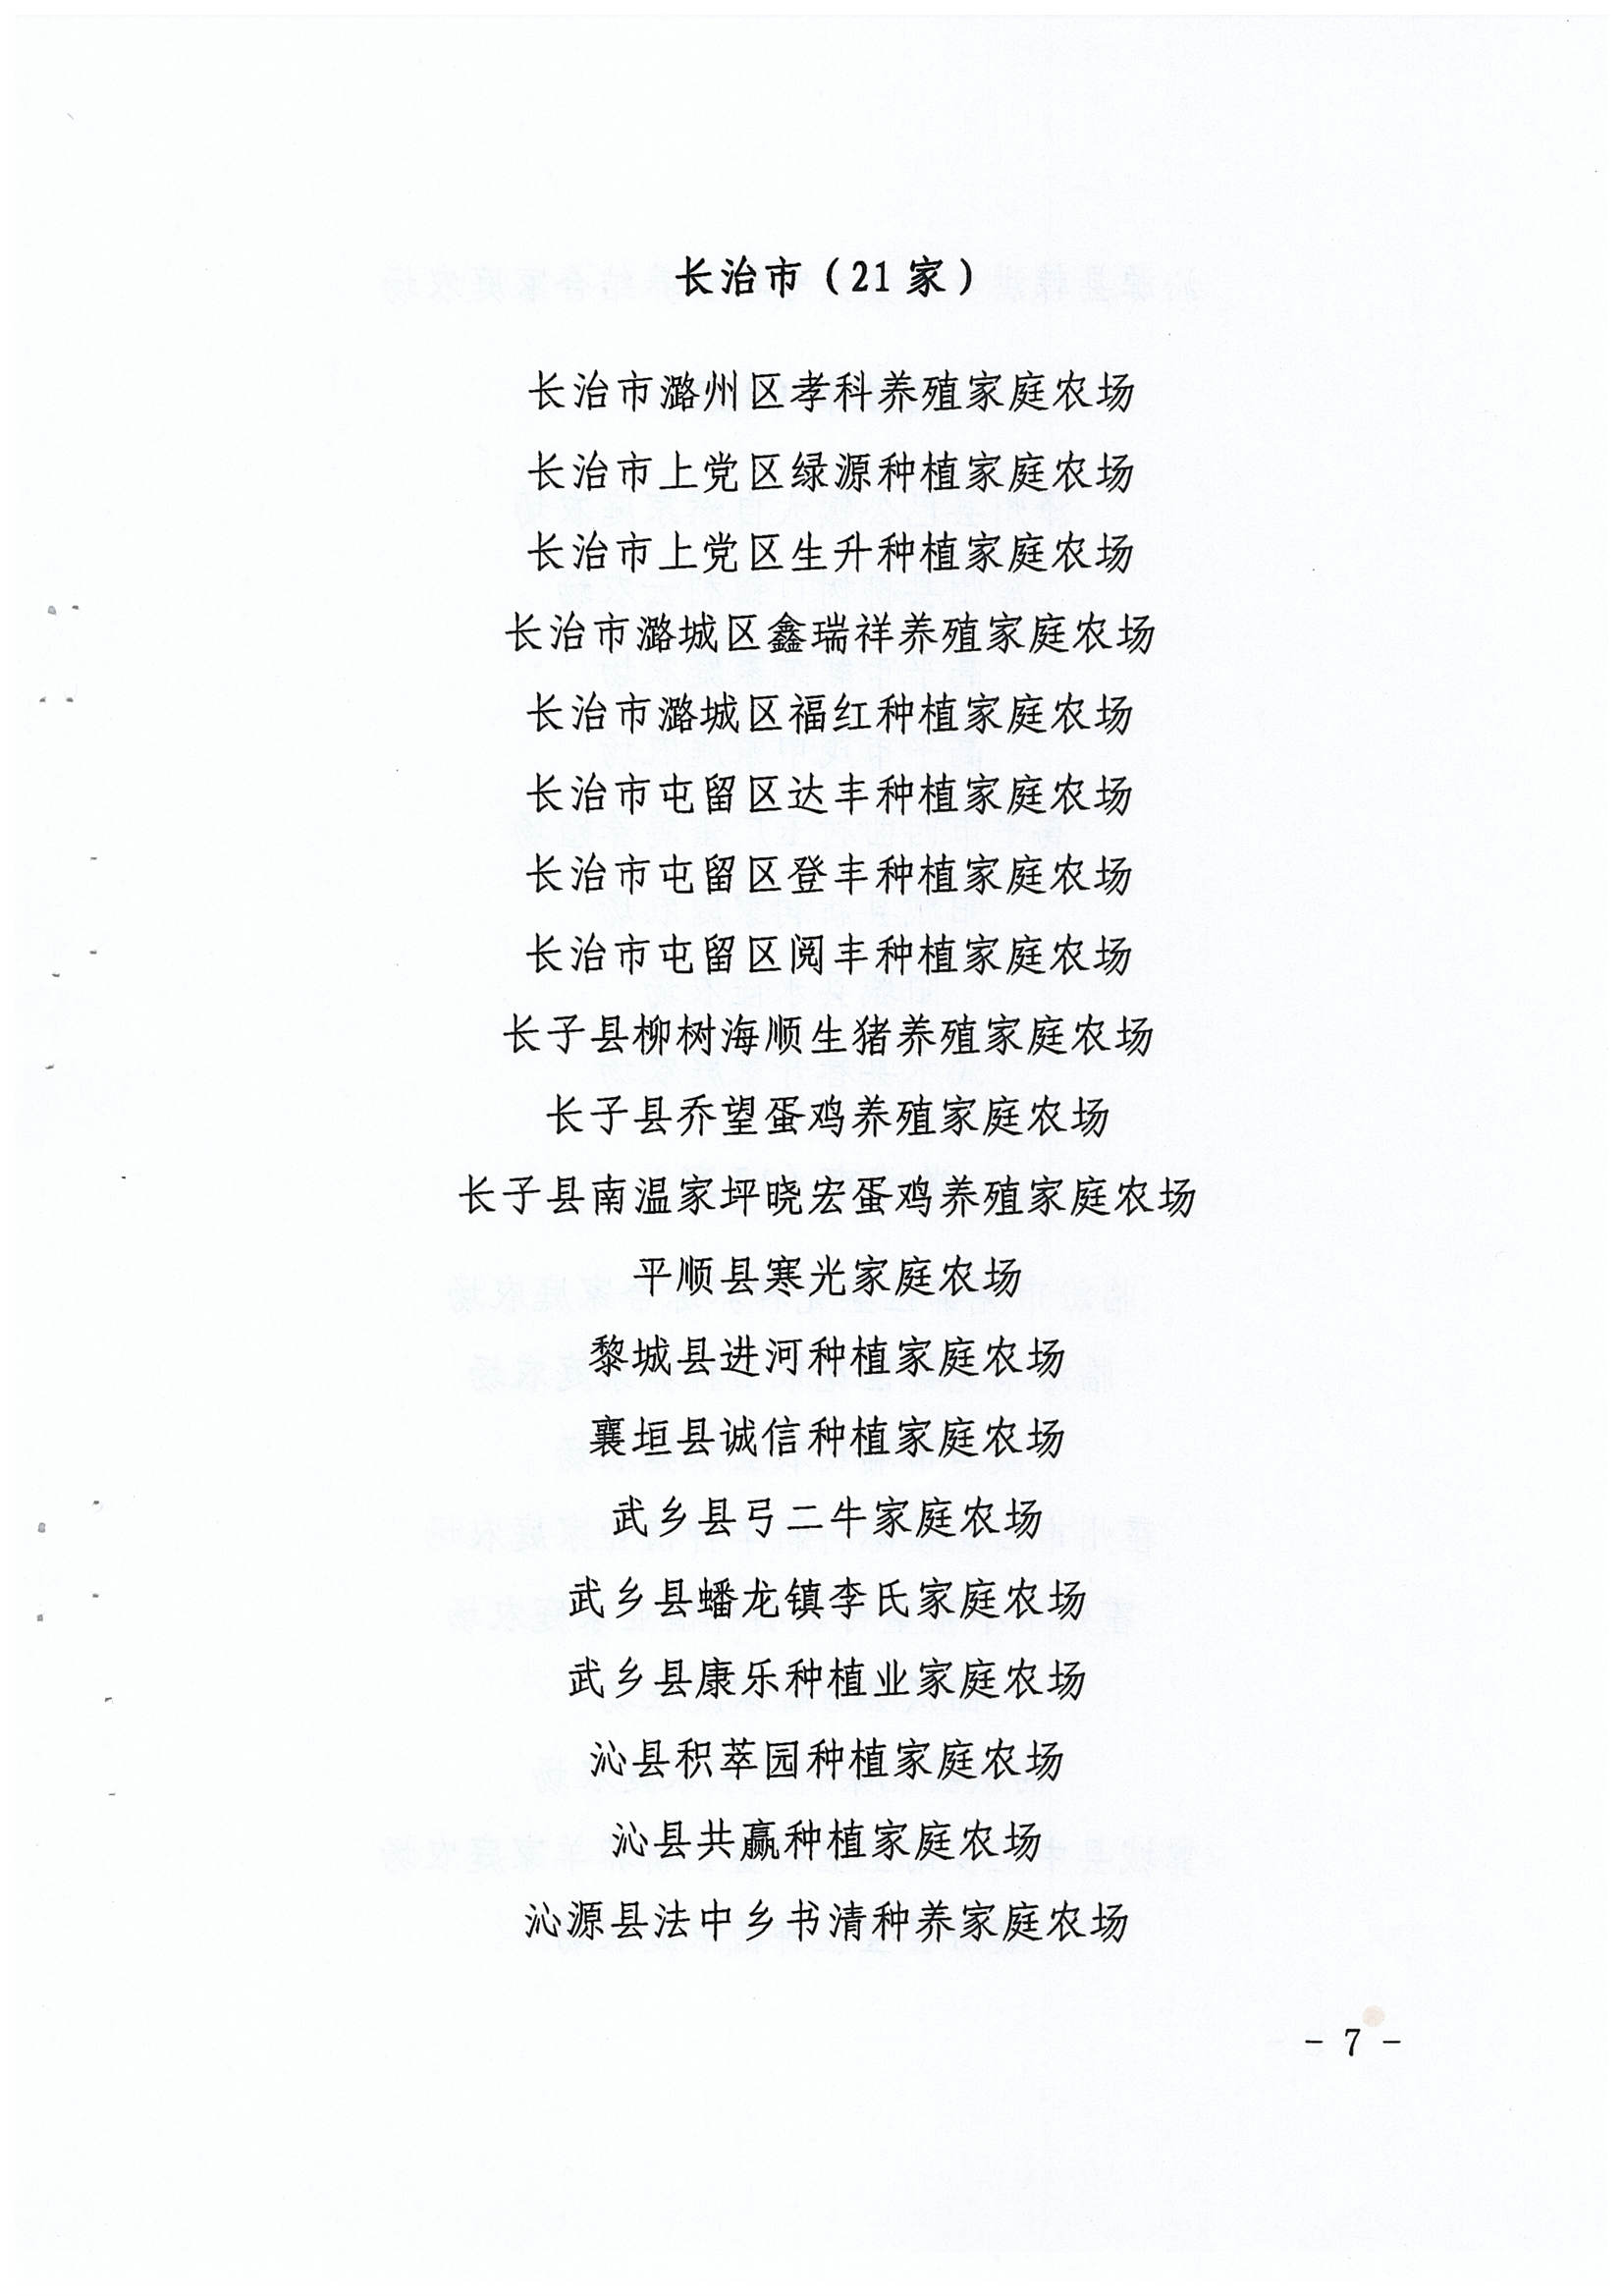 长治市（21家）
长治市潞州区孝科养殖家庭农场
长治市上党区绿源种植家庭农场
长治市上党区生升种植家庭农场
长治市潞城区鑫瑞祥养殖家庭农场
长治市潞城区福红种植家庭农场
长治市屯留区达丰种植家庭农场
长治市屯留区登丰种植家庭农场
长治市屯留区阅丰种植家庭农场
长子县柳树海顺生猪养殖家庭农场
长子县乔望蛋鸡养殖家庭农场
长子县南温家坪晓宏蛋鸡养殖家庭农场
平顺县寒光家庭农场
黎城县进河种植家庭农场
襄垣县诚信种植家庭农场
武乡县弓二牛家庭农场
武乡县蟠龙镇李氏家庭农场
武乡县康乐种植业家庭农场
沁县积萃园种植家庭农场
沁县共赢种植家庭农场
沁源县法中乡书清种养家庭农场
- 7 -